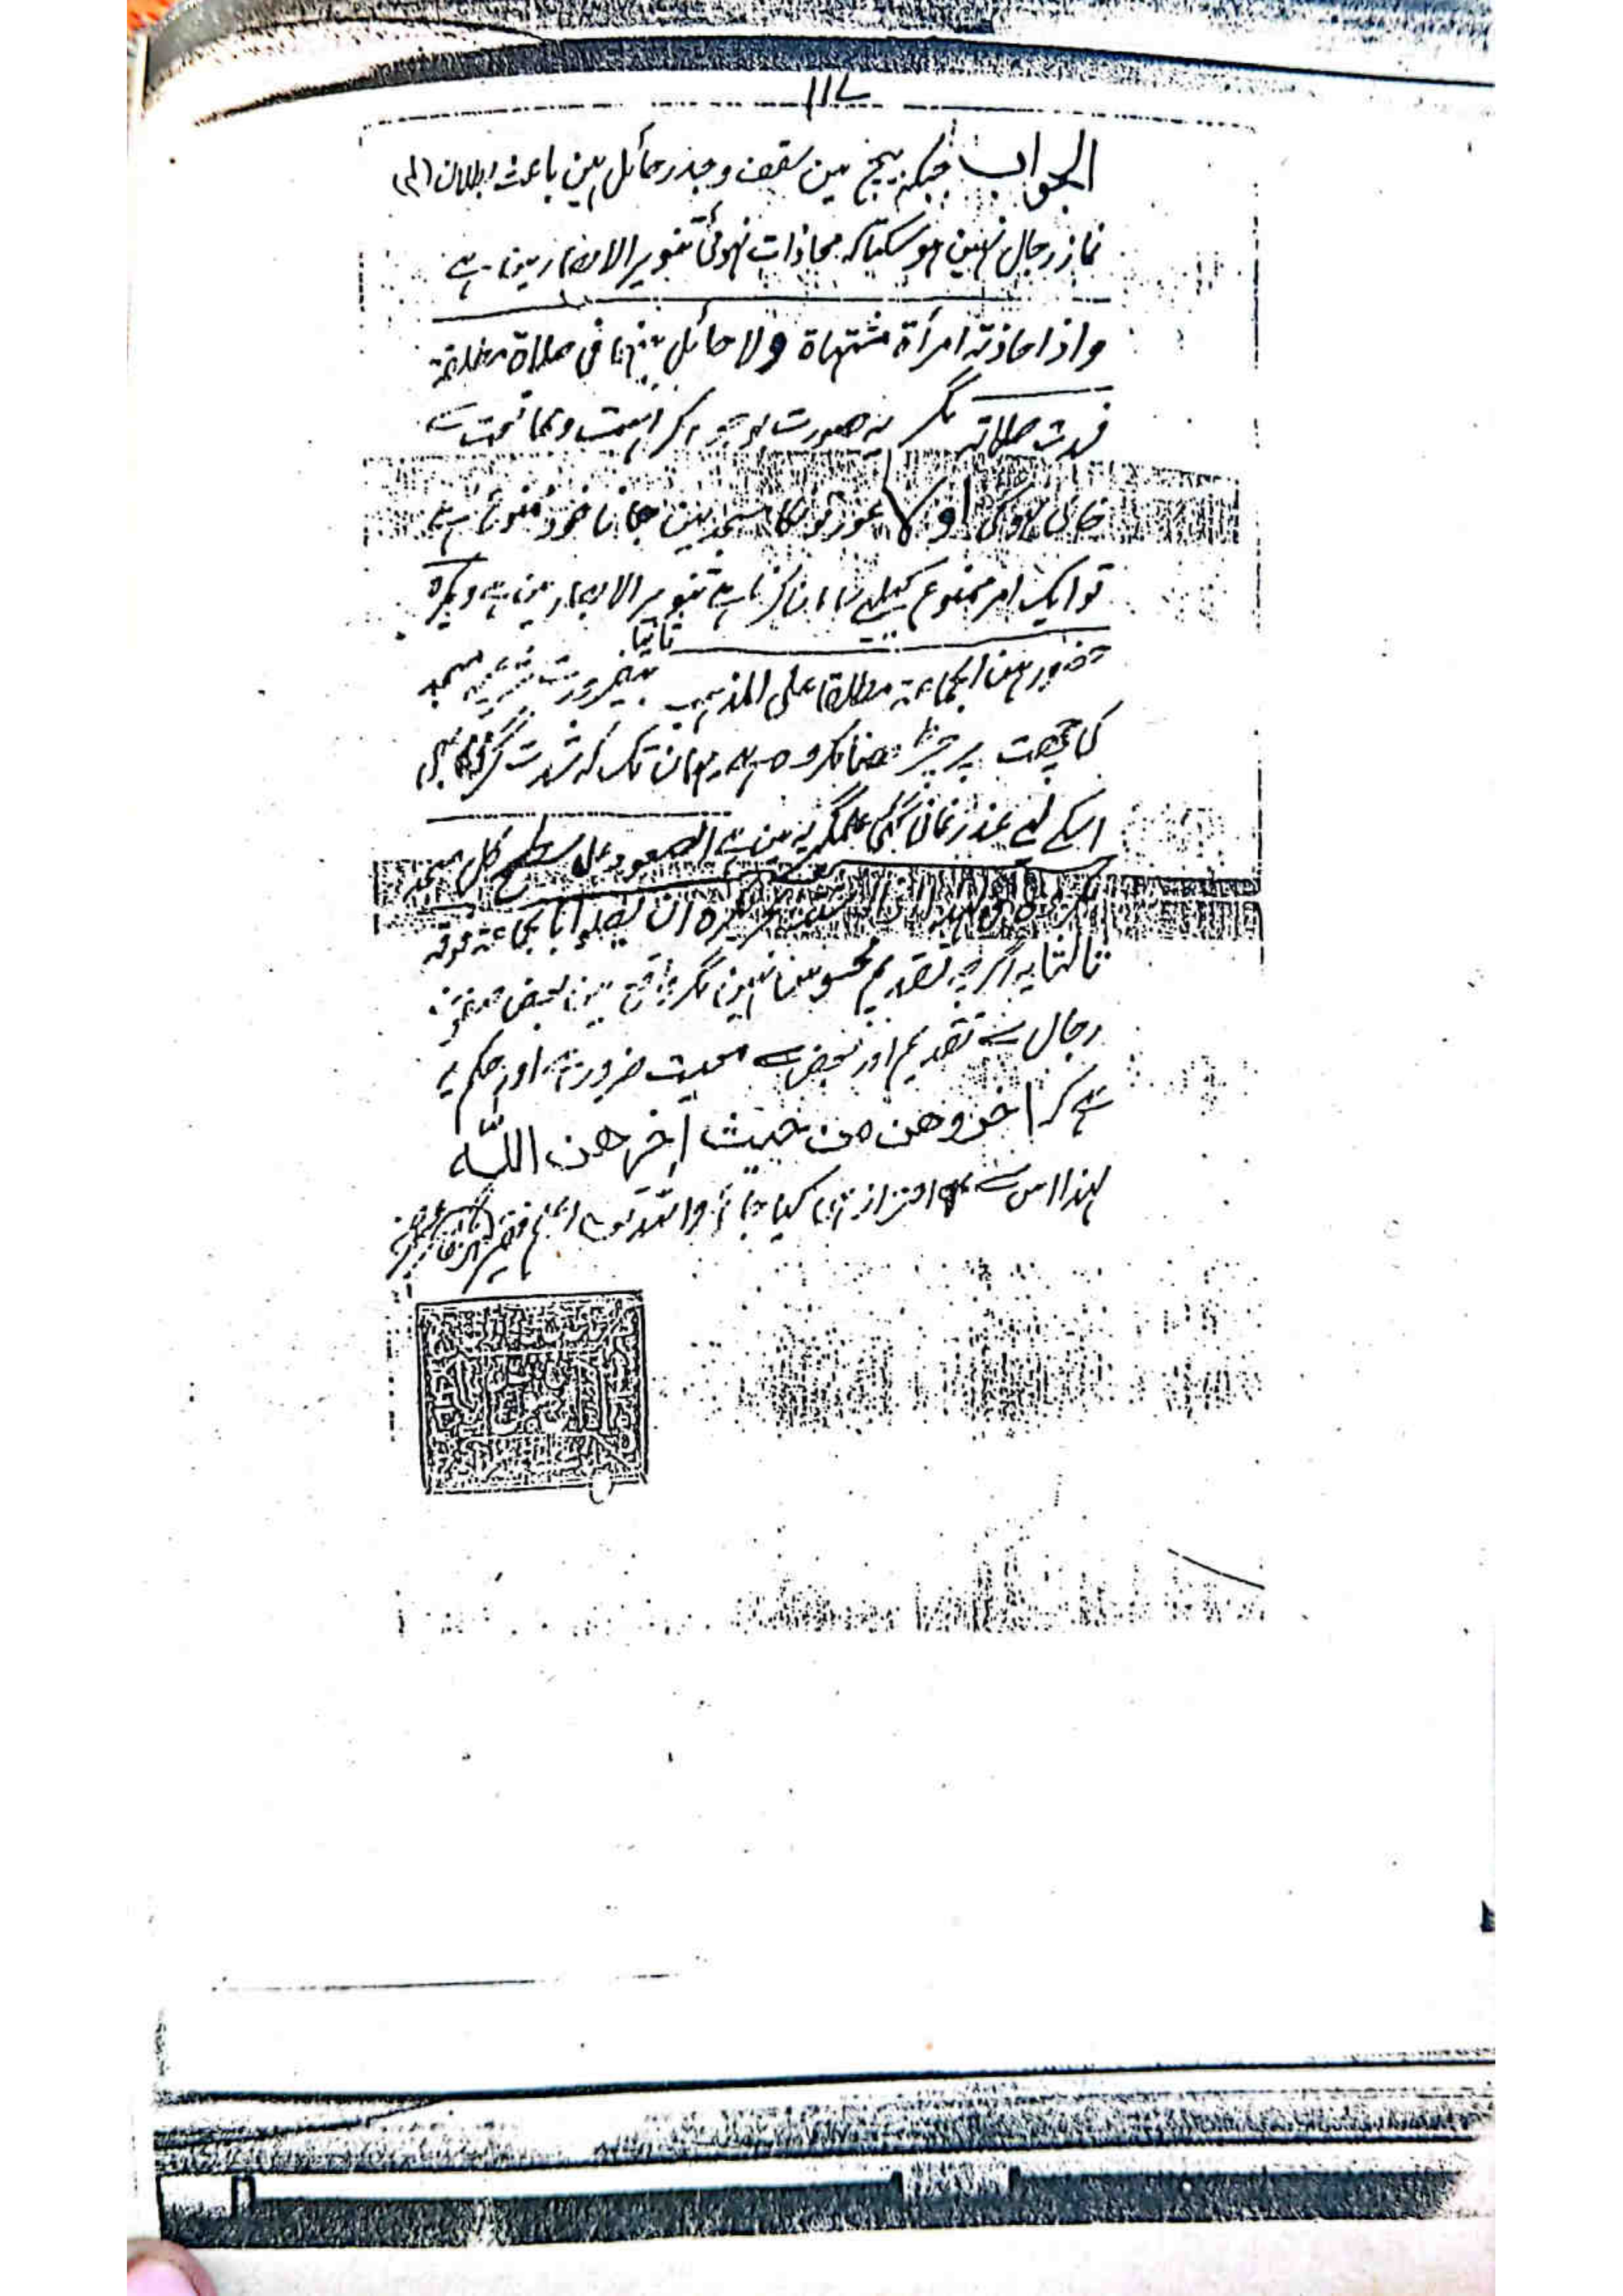 ۱۱۷
الجواب جبکہ بیچ مین سقف و جدر حائل ہین باعث بطلان
نماز رجال نہین ہو سکتا کہ محاذات نہوئی تنویر الابصار مین ہے
واذا حاذتہ امرأۃ مشتہاۃ ولا حائل بینہما فی صلاۃ مطلقۃ
فسدت صلاتہ مگر یہ صورت بوجوہ کراہت و ممانعت سے
خالی نہوگی اولا عورتونکا مسجد مین جانا خود ممنوع ہے
تو ایک امر ممنوع کیلیے سامان کرنا ہے تنویر الابصار مین ہے ویکرہ
حضورہن الجماعۃ مطلقا علی المذہب ثانیا بیضرورت شرعیہ مسجد
کی چھت پر چڑھنا مکروہ ہے یہان تک کہ شدت گرمی بھی
اسکے لیے عذر نمانی گئی علمگیریہ مین ہے الصعود علی سطح کل مسجد
مکروہ ولہذا اذا اشتد الحر یکرہ ان یصلوا بالجماعۃ فوقہ
ثالثا یہ اگرچہ تقدیم محسوس نہین مگر واقع مین بعض صفوف
رجال سے تقدیم اور بعض سے معیت ضرور ہے اور حکم یہ
ہے کہ اخروھن من حیث اخرھن اللہ
لہذا اس سے احتراز ہی کیا جائے واللہ تعالی اعلم فقیر